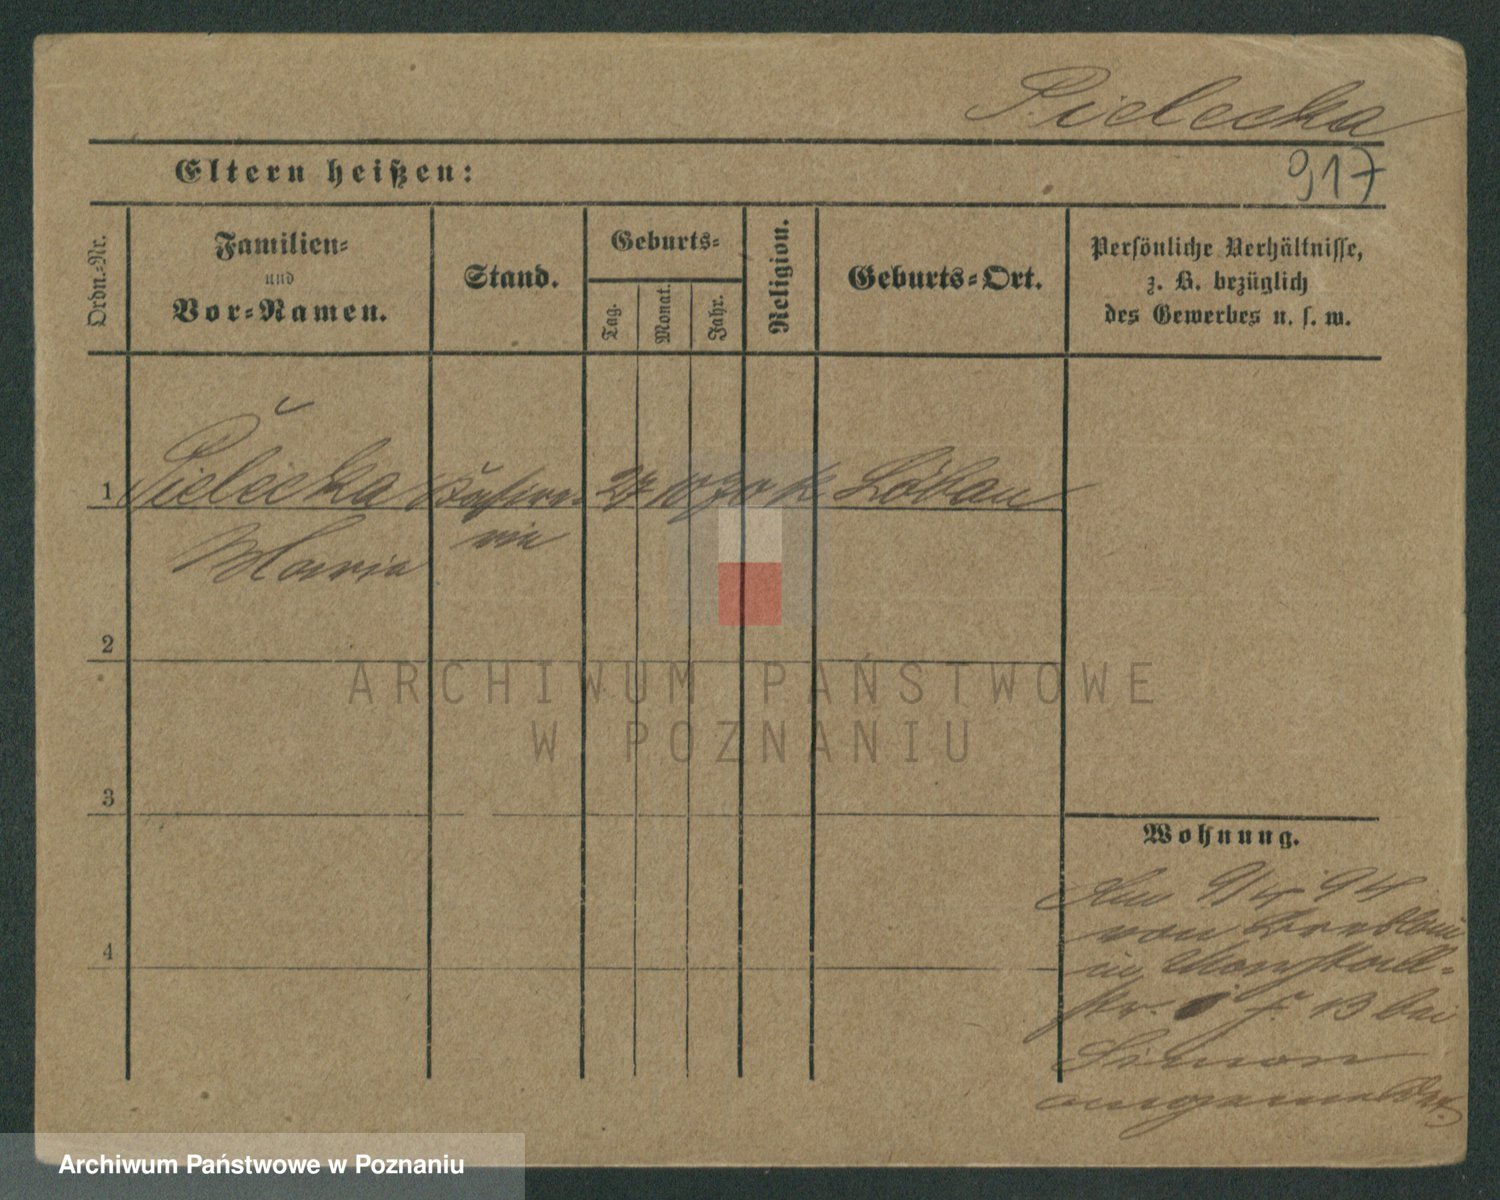 Pielecka
917
Eltern heißen:
Ordn.-Nr.
Familien-
und
Vor-Namen.
Stand.
Geburts-
Tag.
Monat.
Jahr.
Religion.
Geburts-Ort.
Persönliche Verhältnisse,
z. B. bezüglich
des Gewerbes u. s. w.
1 Pielecka 27 10 70 k Löbau
Maria
2
3
4
Wohnung.
Am 9/4 94
von Breslau
in
str. 13 bei
Simon
angemeldet.
ARCHIWUM PAŃSTWOWE
W POZNANIU
Archiwum Państwowe w Poznaniu